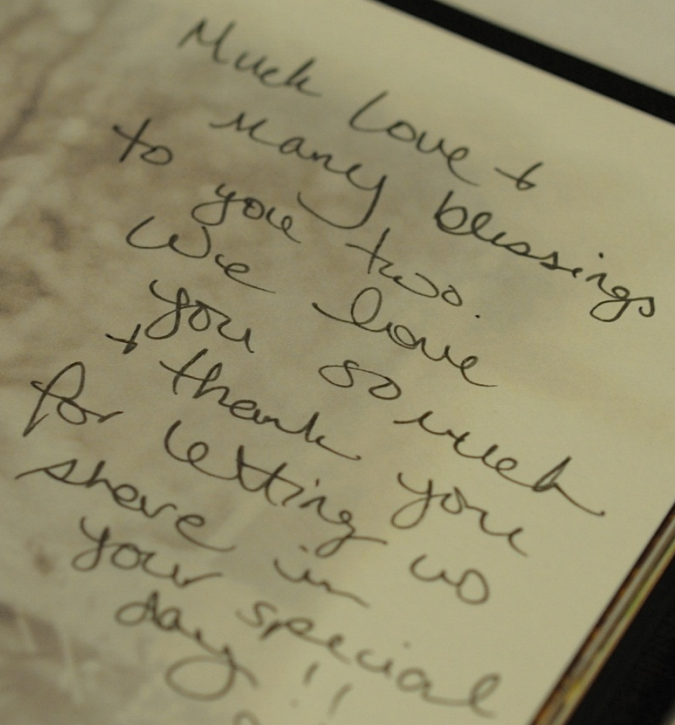 Much love +
many blessings
to you two.
We love
you so much
+ thank you
for letting us
share in
your special
day!!